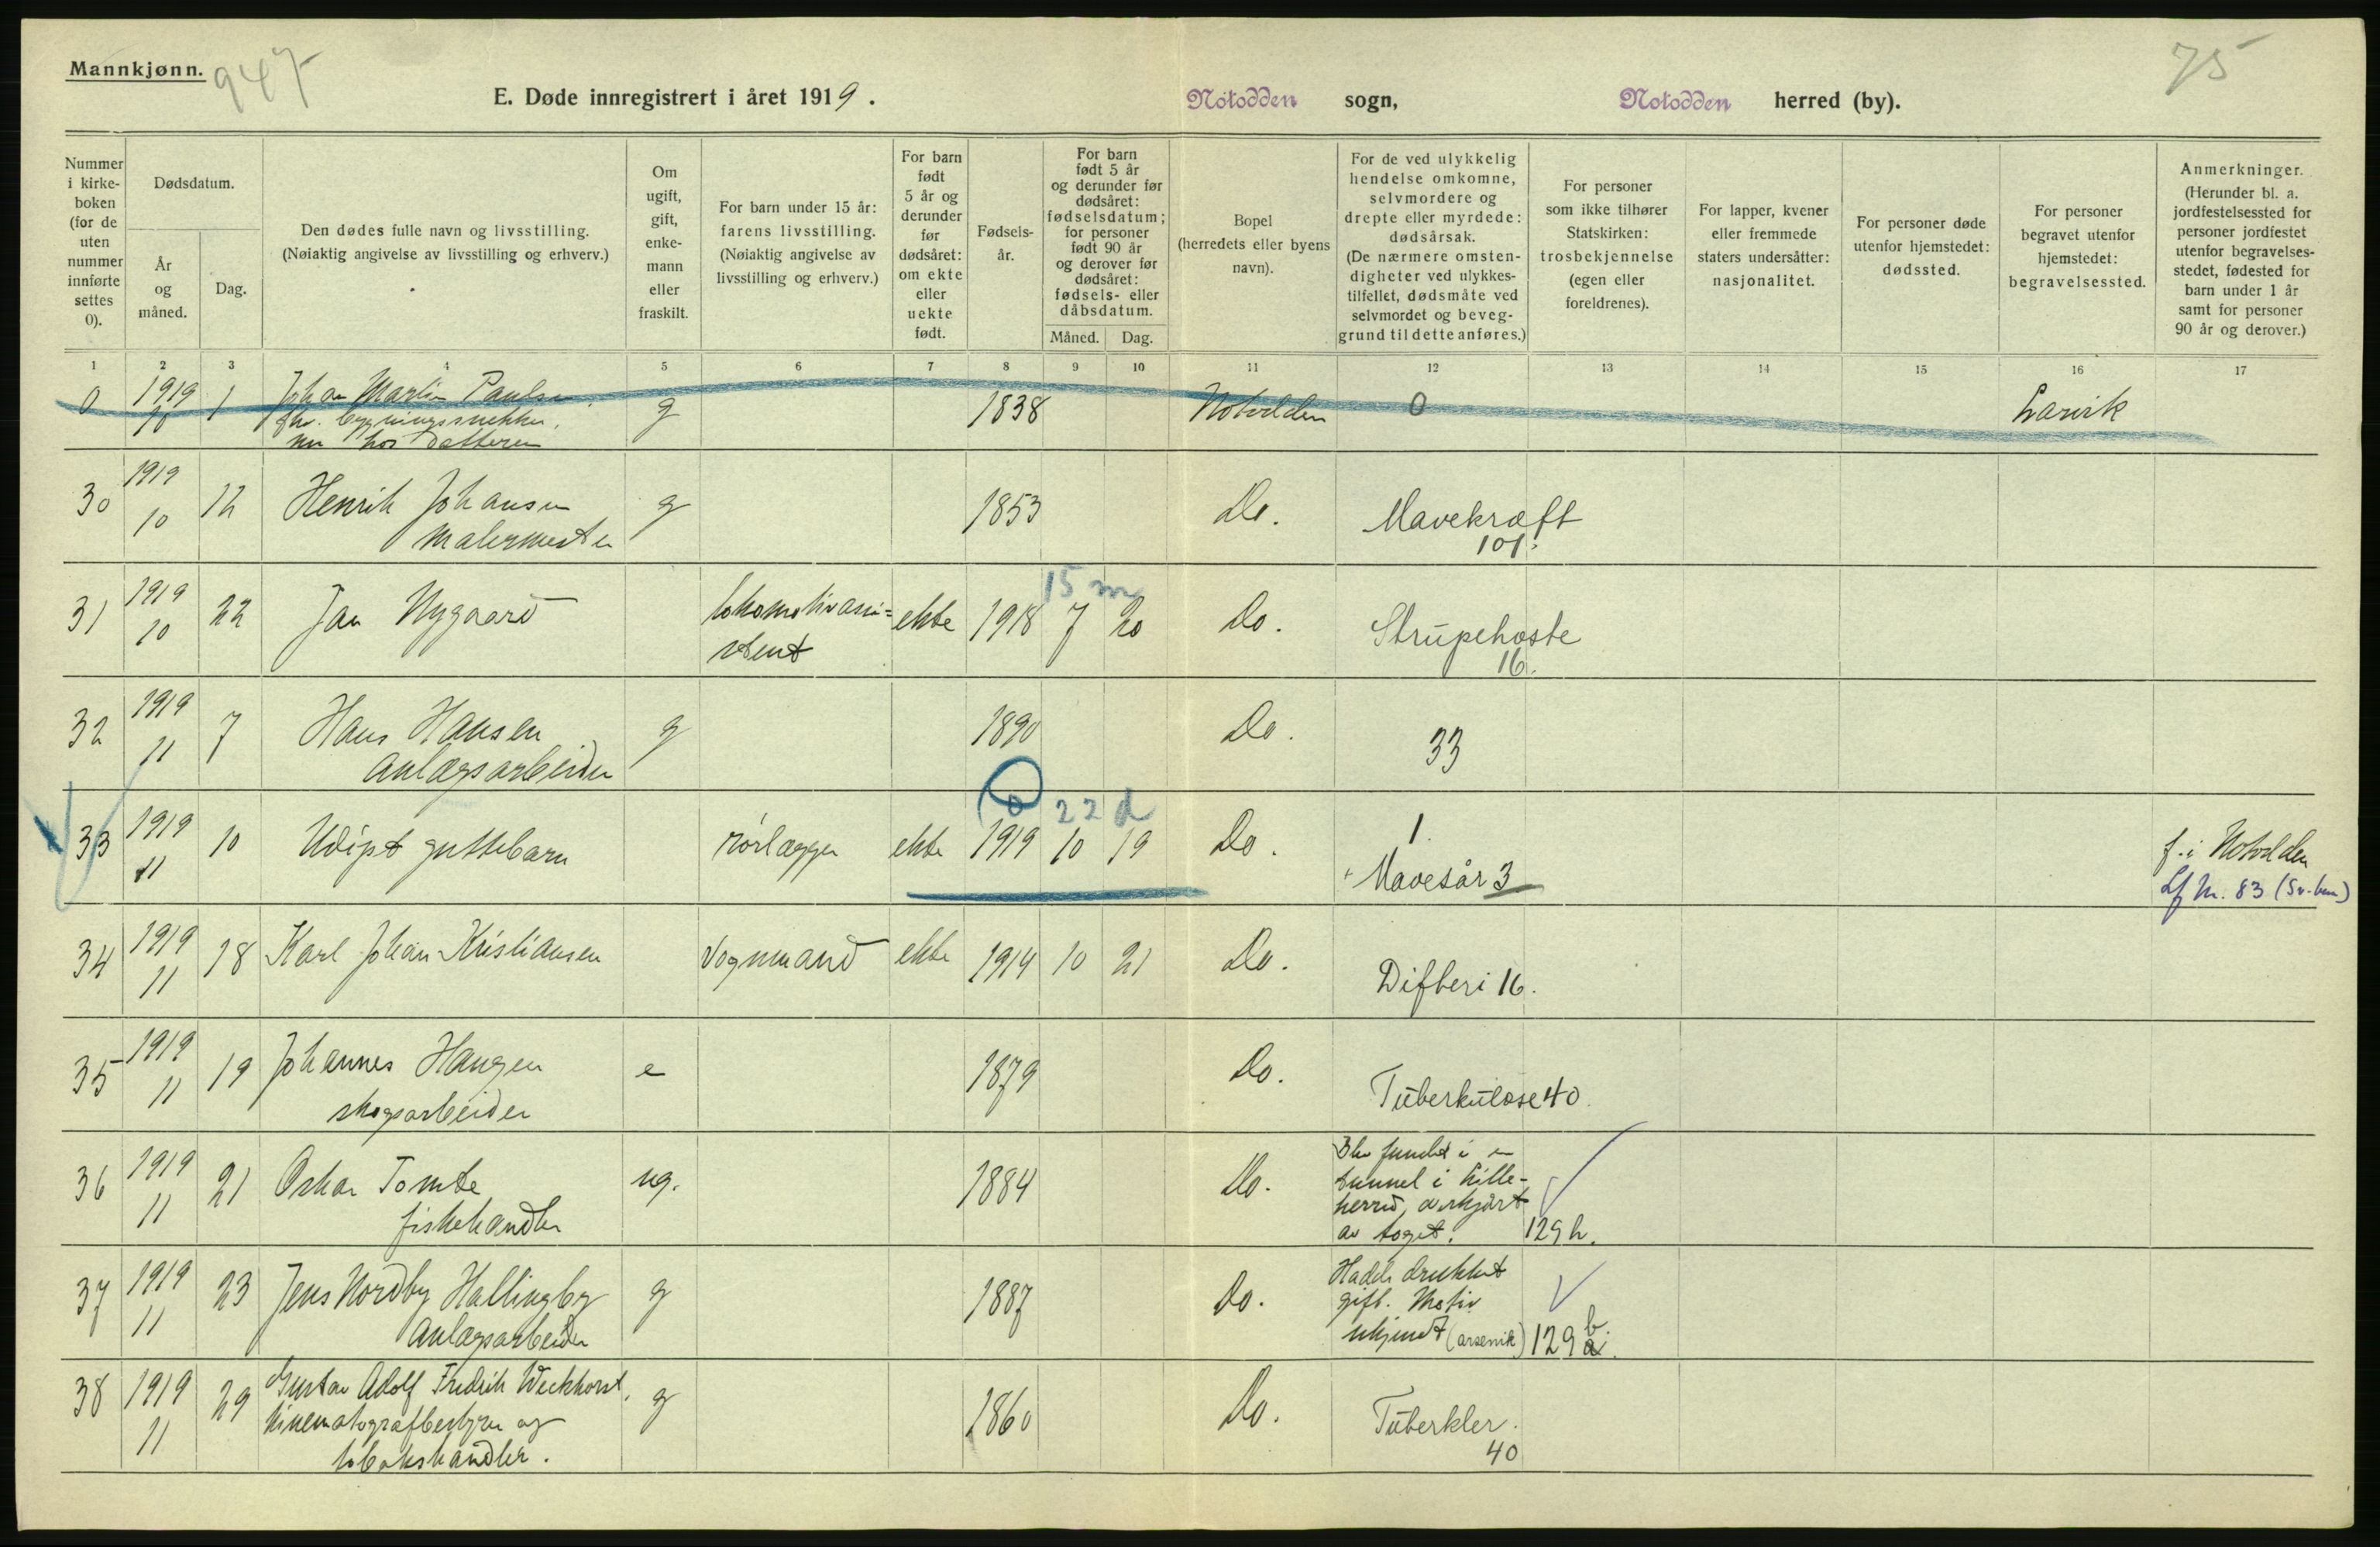 Mannkjønn.
947
75
E. Døde innregistrert i året 1919.
Notodden sogn,
Notodden herred (by).
Nummer i kirke-boken (for de uten nummer innførte settes 0).
Dødsdatum.
År og måned.
Dag.
Den dødes fulle navn og livsstilling.
(Nøiaktig angivelse av livsstilling og erhverv.)
Om ugift, gift, enke-mann eller fraskilt.
For barn under 15 år: farens livsstilling.
(Nøiaktig angivelse av livsstilling og erhverv.)
For barn født 5 år og derunder før dødsåret: om ekte eller uekte født.
Fødsels-år.
For barn født 5 år og derunder før dødsåret: fødselsdatum; for personer født 90 år og derover før dødsåret: fødsels- eller dåbsdatum.
Måned. Dag.
Bopel (herredets eller byens navn).
For de ved ulykkelig hendelse omkomne, selvmordere og drepte eller myrdede: dødsårsak.
(De nærmere omsten-digheter ved ulykkes-tilfellet, dødsmåte ved selvmordet og beveg-grund til dette anføres.)
For personer som ikke tilhører Statskirken: trosbekjennelse (egen eller foreldrenes).
For lapper, kvener eller fremmede staters undersåtter: nasjonalitet.
For personer døde utenfor hjemstedet: dødssted.
For personer begravet utenfor hjemstedet: begravelsessted.
Anmerkninger.
(Herunder bl. a. jordfestelsessted for personer jordfestet utenfor begravelses-stedet, fødested for barn under 1 år samt for personer 90 år og derover.)
1 2 3 4 5 6 7 8 9 10 11 12 13 14 15 16 17
0 1919 10 1 Johan Martin Paulsen
fhv. bygningssnekker,
nu hos datteren
g 1838 Notodden 0 Larvik
30 1919 10 12 Henrik Johansen
malermester
g 1853 Do. Mavekræft
101.
15 m
31 1919 10 22 Jan Nygaard lokomotivassi=
stent
ekte 1918 7 20 Do. Strupehoste
16.
32 1919 11 7 Hans Hansen
Anlægsarbeider
g 1890 Do. 33
0 22 d
33 1919 11 10 Udøpt guttebarn rørlægger ekte 1919 10 19 Do. 1.
+ Mavesår 3
f. i Notodden
Lf Nr. 83
34 1919 11 18 Karl Johan Kristiansen Vognmand ekte 1914 10 21 Do. Difteri 16.
35 1919 11 19 Johannes Haugen
skogsarbeider
e 1879 Do. Tuberkulose 40.
36 1919 11 21 Oskar Tomte
fiskehandler
ug. 1884 Do. Blev fundet i en
tunnel i Lille-
herred, overkjørt
av toget. 129 h.
37 1919 11 23 Jens Nordby Hallingby
Anlægsarbeider
g 1887 Do. Hadde drukket
gift. Motiv
ukjendt (arsenik) 129 b.
38 1919 11 29 Gustav Adolf Fredrik Weckhorst,
kinematografbestyrer og
tobakshandler.
g 1860 Do. Tuberkler.
40